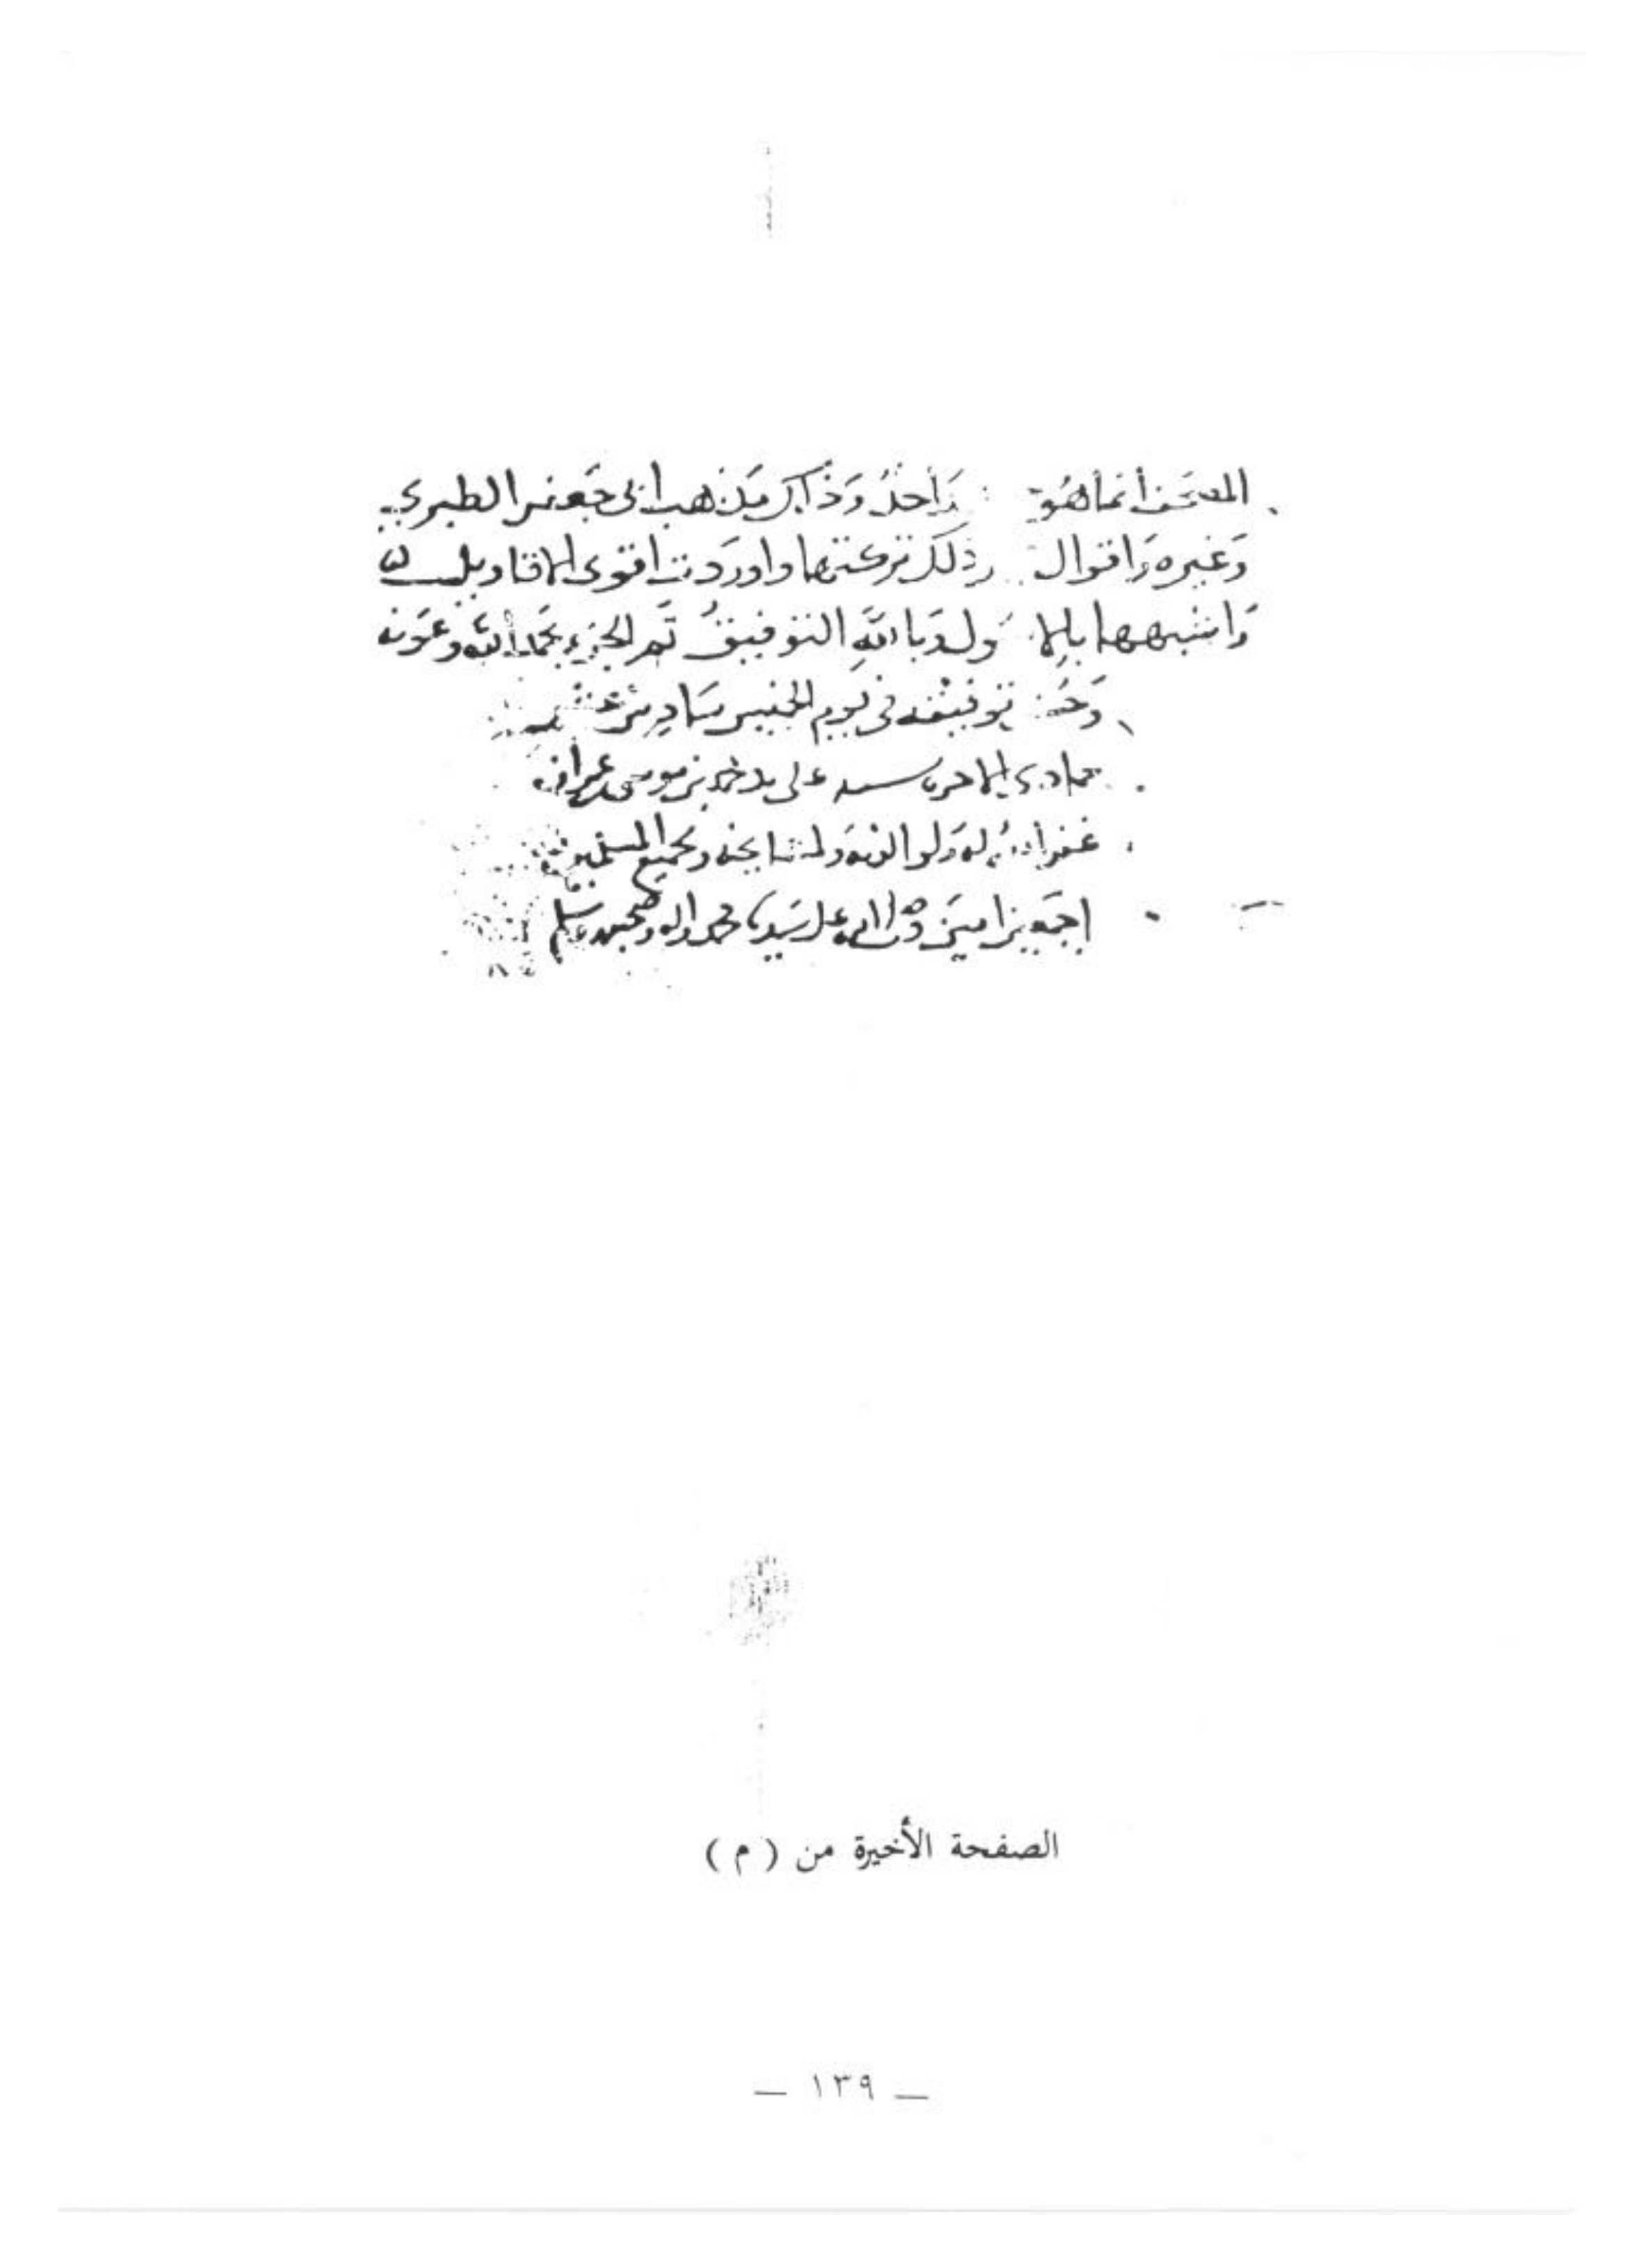 المصحف إنما هو واحد وذاك مذهب ابي جعفر الطبري
وغيره واقوال ذلك تركتها واوردت اقوى الاقاويل
واشبهها بالا ول وبالله التوفيق تم الجزء بحمد الله وعونه
توفيقه في يوم الخميس سادس عشر
جمادى الاخر سنه على يد بن عمران
غفر الله له ولوالديه ولمشايخه ولجميع المسلمين
اجمعين امين وصلى الله على سيدنا محمد واله وصحبه وسلم
الصفحة الأخيرة من ( م )
— ١٣٩ —